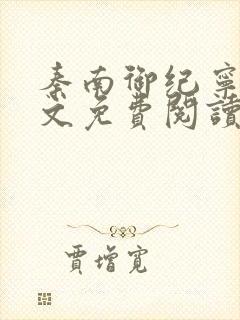 秦南御纪寧
文免費閱讀
賈增寬